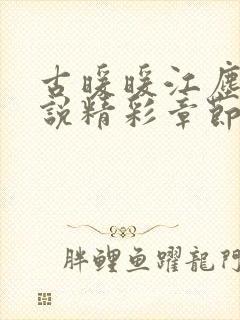 古暖暖江塵
説精彩章節
胖鯉魚躍龍門